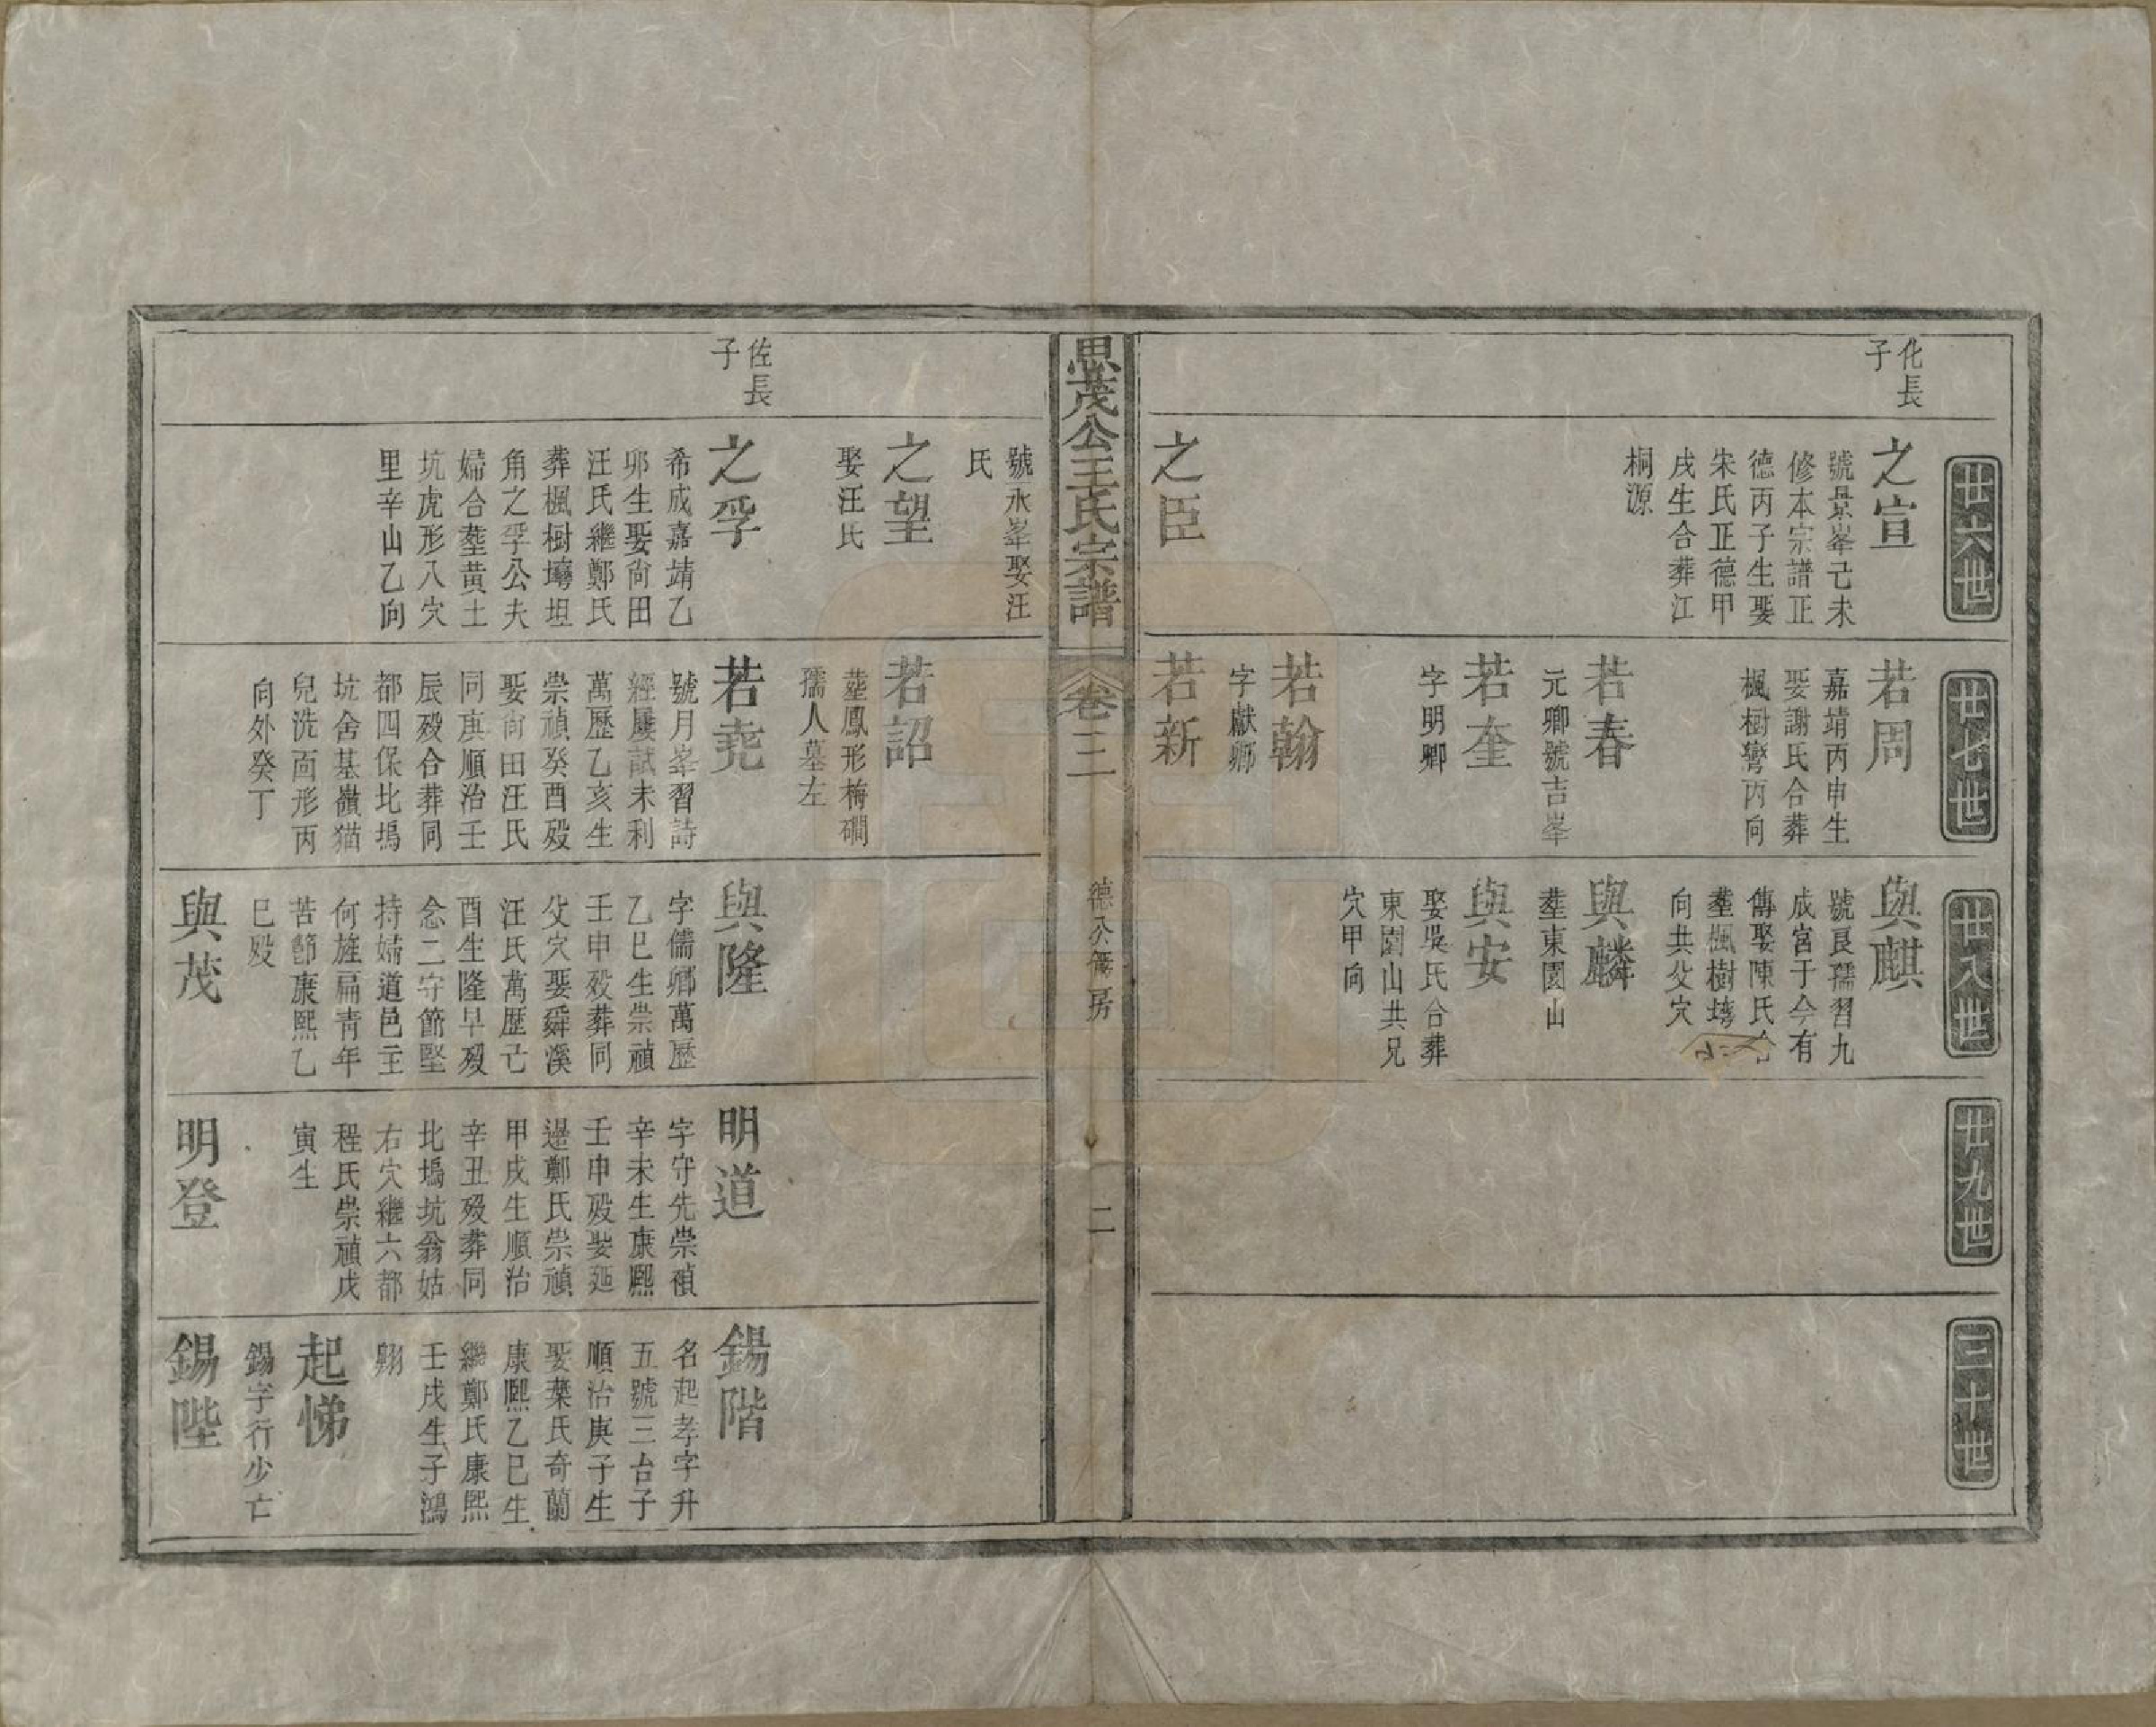 廿六世
廿七世
廿八世
廿九世
三十世
化長
子
之宣
號景峯己未
修本宗譜正
德丙子生娶
朱氏正德甲
戌生合葬江
桐源
之臣
若周
嘉靖丙申生
娶謝氏合葬
楓樹彎丙向
若春
元卿號吉峯
若奎
字明卿
若翰
字獻卿
若新
與麒
號良孺習九
成宮于今有
傳娶陳氏合
塟楓樹塆
向共父穴
與麟
塟東園山
與安
娶吳氏合葬
東園山共兄
穴甲向
思茂公王氏宗譜
卷二
德公備房
二
號永峯娶汪
氏
之望
娶汪氏
佐長
子
之孚
希成嘉靖乙
卯生娶尙田
汪氏繼鄭氏
葬楓樹塆坦
角之孚公夫
婦合塟黄土
坑虎形八穴
里辛山乙向
若詔
塟鳳形梅磵
孺人墓左
若堯
號月峯習詩
經屢試未利
萬歷乙亥生
崇禎癸酉歿
娶尙田汪氏
同庚順治壬
辰歿合葬同
都四保北塢
坑舍基嶺猫
兒洗面形丙
向外癸丁
與隆
字儒卿萬歷
乙巳生崇禎
壬申歿葬同
父穴娶舜溪
汪氏萬歷己
酉生隆早歿
念二守節堅
持婦道邑主
何旌扁靑年
苦節康熙乙
巳歿
與茂
明道
字守先崇禎
辛未生康熙
壬申歿娶延
邊鄭氏崇禎
甲戌生順治
辛丑歿葬同
北塢坑翁姑
右穴繼六都
程氏崇禎戊
寅生
明登
錫階
名起孝字升
五號三台子
順治庚子生
娶葉氏奇蘭
康熙乙巳生
繼鄭氏康熙
壬戌生子鴻
翔
起悌
錫字行少亡
錫陛